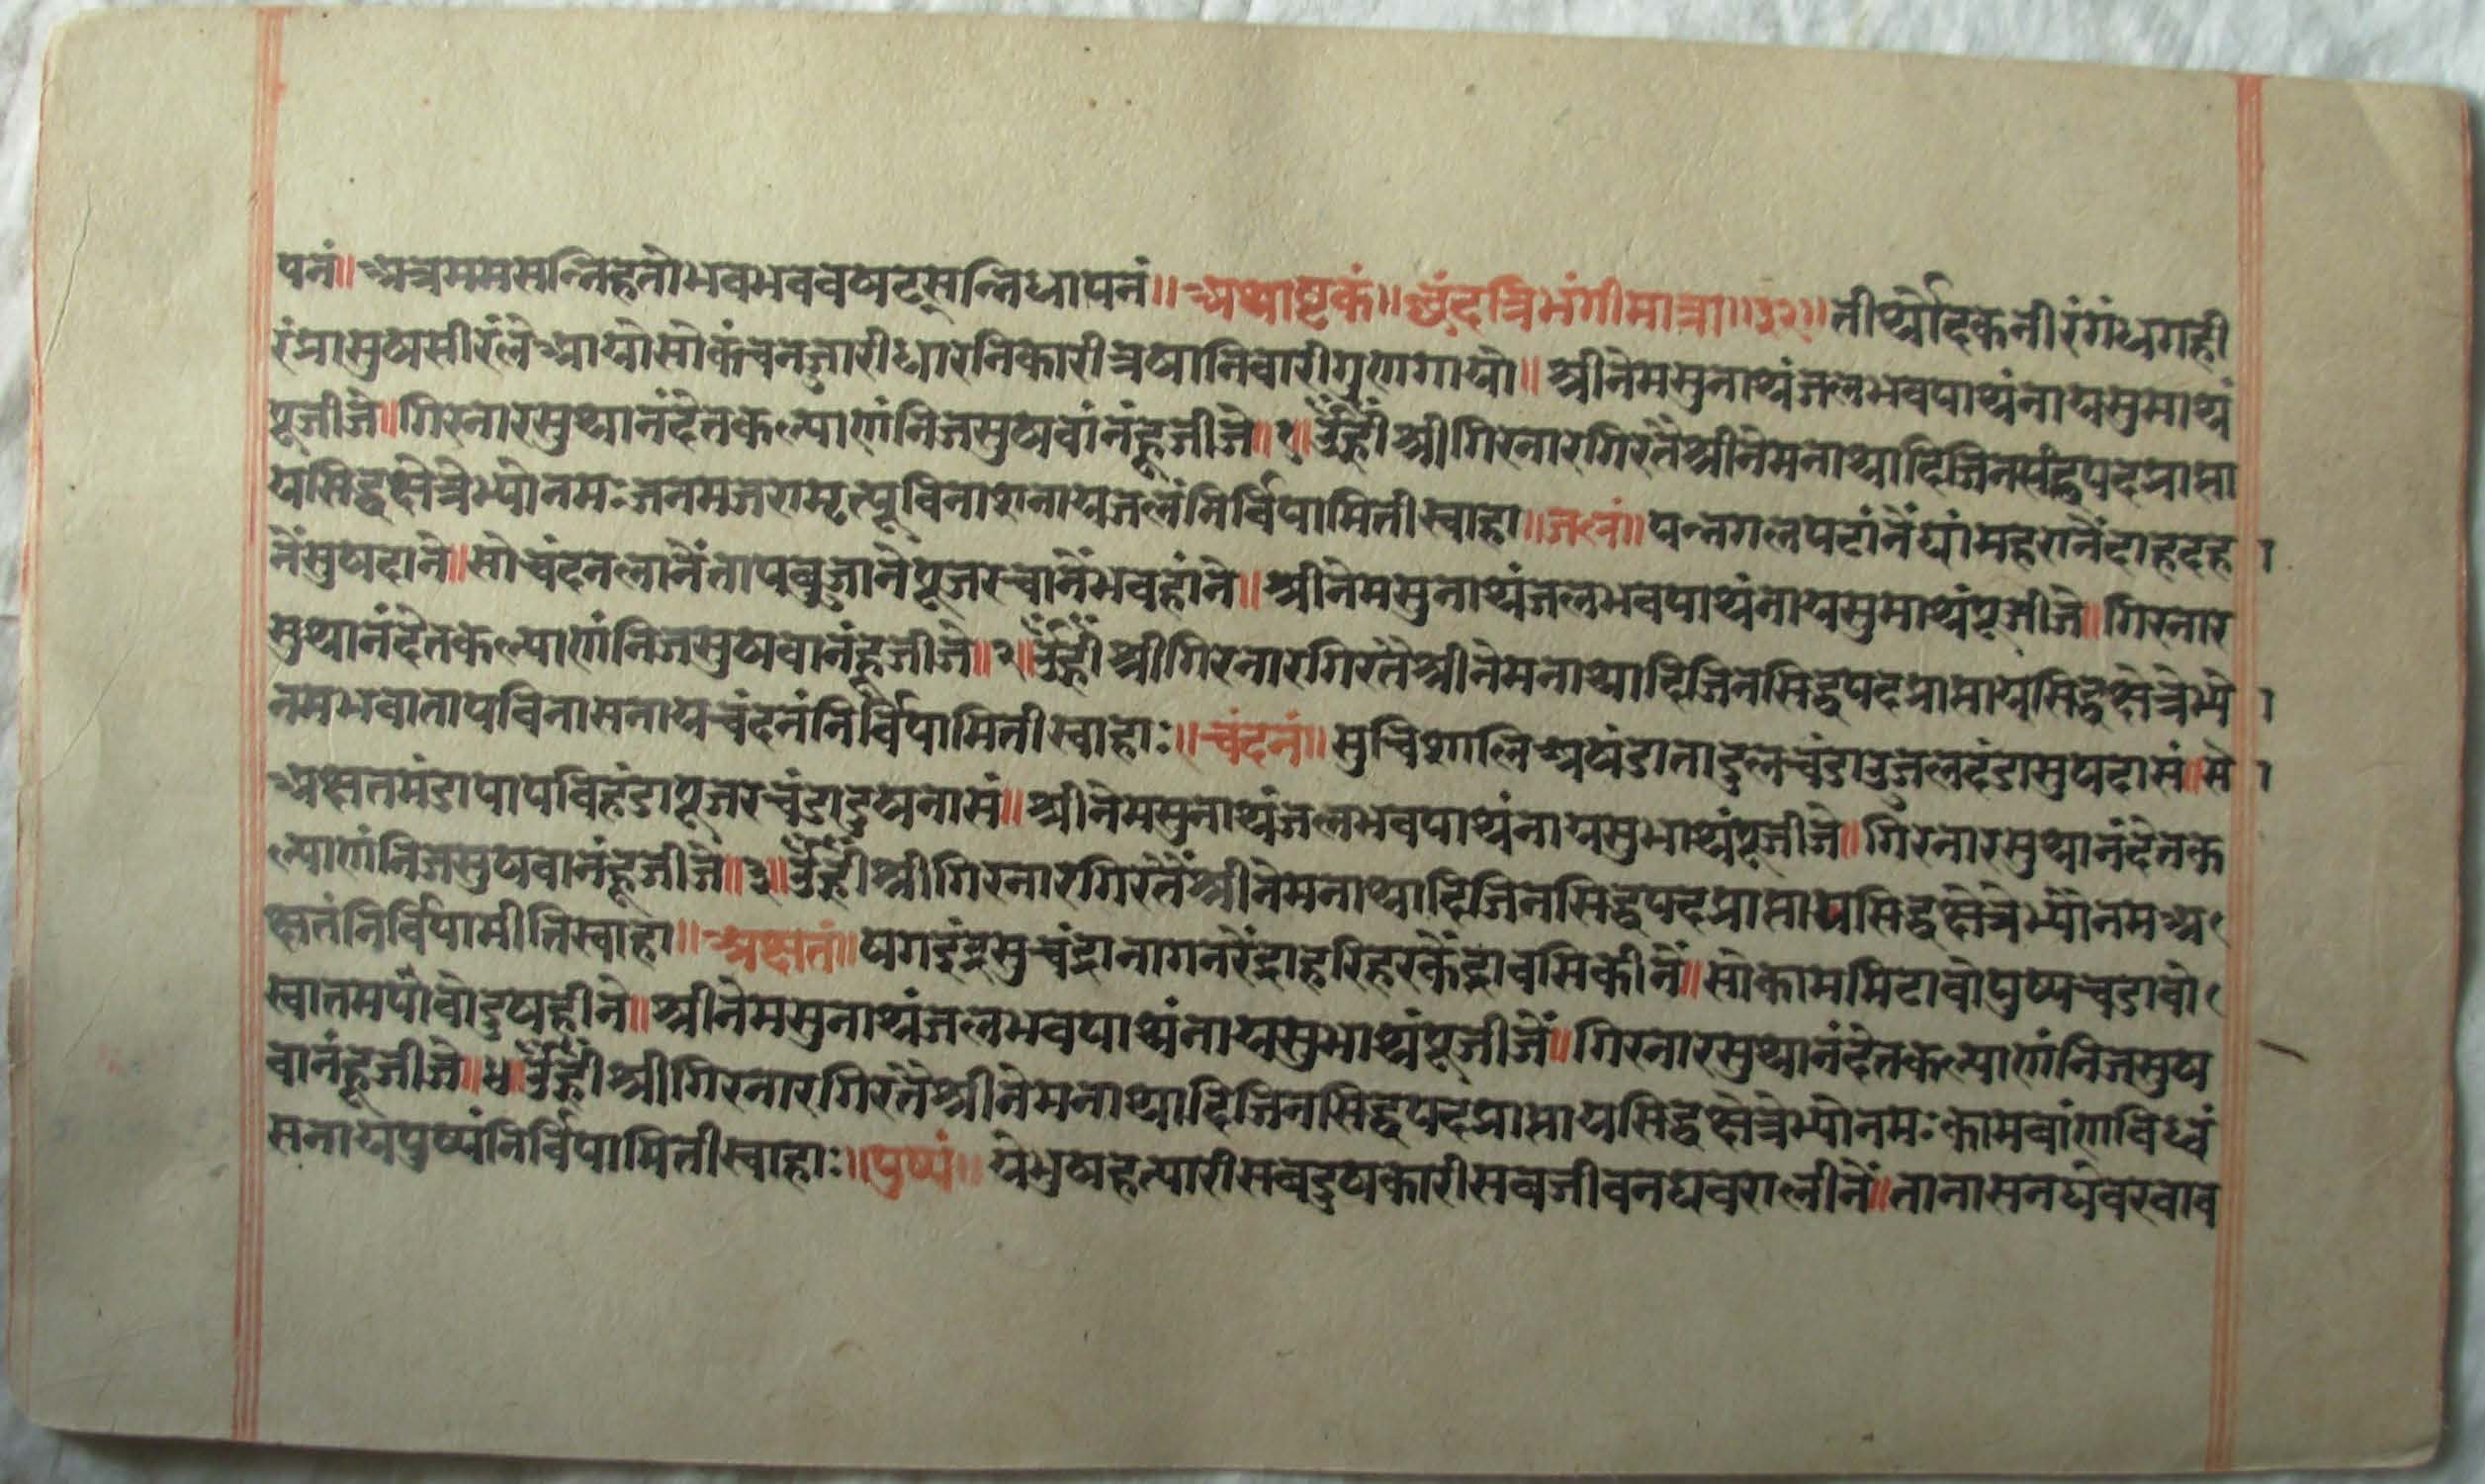 पनं॥अत्रममसन्निहतोभवभववषट्सन्निधापनं॥अथाष्टकं॥छंदत्रिभंगीमात्रा॥३२॥तीर्थोदकनीरंगंधगही
रंप्रासुषसीरंलेआयोसोकंचनजारीधारनिकारीत्रषानिवारीगुणगायो॥श्रीनेमसुनाथंजलभवपाथंनायसुमाथं
पूजीजे॥गिरनारसुथानंदेतकल्याणंनिजसुषवांनंहूजीजे॥१॥ॐह्रीं श्रीगिरनारगिरतैश्रीनेमनाथादिजिनसिद्धपदप्राप्ता
यसिद्धक्षेत्रेभ्योनमःजनमजरामृत्यूविनाशनायजलंनिर्विपामितीस्वाहा॥जलं॥पन्नगलपटांनैंघांमहरानैंदाहदह।
नैंसुषदाने॥सोचंदनलानैंतापबुजानेपूजरचानैंभवहांने॥श्रीनेमसुनाथंजलभवपाथंनायसुमाथंपूजीजे॥गिरनार
सुथानंदेतकल्याणंनिजसुषवानंहूजीजे॥२॥ॐह्रीं श्रीगिरनारगिरतैश्रीनेमनाथादिजिनसिद्धपदप्राप्तायसिद्धक्षेत्रेभ्ये।
नमभवातापविनासनायचंदनंनिर्विपामितीस्वाहाः॥चंदनं॥सुचिशालिअषंडातादुलचंडाउजलदंडासुषदासं॥से।
अक्षतमंडापापविहंडापूजरचंडादुषनासं॥श्रीनेमसुनाथंजलभवपाथंनायसुभाथंपूजीजे॥गिरनारसुथानंदेतक
ल्याणंनिजसुषवानंहूजीजे॥३॥ॐह्रीं श्रीगिरनारगिरतैंश्रीनेमनाथादिजिनसिद्धपदप्राप्तायसिद्धक्षेत्रेभ्योनमअ
क्षतंनिर्विपामीतिस्वाहा॥अक्षतं॥षगइंद्रसुचंद्रानागनरेंद्राहरिहरकैंद्रावसिकीनें॥सोकाममिटावोपुष्पचडावो
स्वातमपांवोदुषहीने॥श्रीनेमसुनाथंजलभवपाथंनायसुभाथंपूजीजें॥गिरनारसुथानंदेतकल्याणंनिजसुष
वानंहूजीजे॥४॥ॐह्रीं श्रीगिरनारगिरतैश्रीनेमनाथादिजिनसिद्धपदप्राप्तायसिद्धक्षेत्रेभ्योनमःकामबांणविध्वं
सनायपुष्पंनिर्विपामितीस्वाहाः॥पुष्पं॥येभुषहत्यारीसबदुषकारीसबजीवनघबरालीनें॥तानासनघेवरबाव